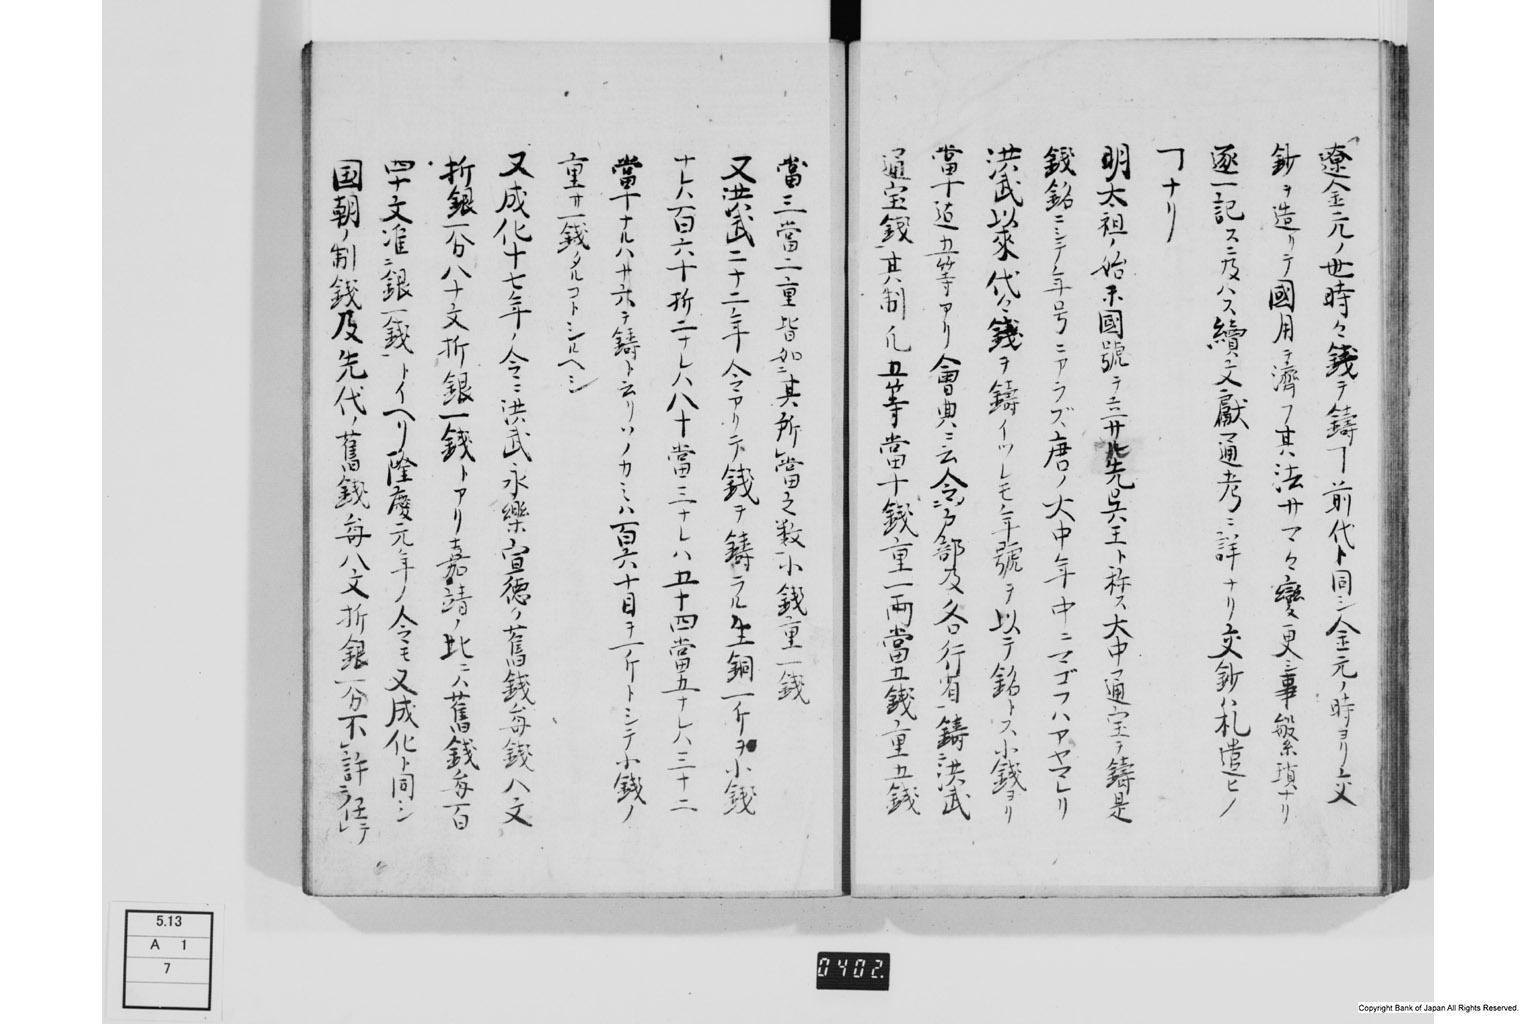 遼金元ノ世時々錢ヲ鑄ヿ前代ト同シ金元ノ時ヨリ交
鈔ヲ造リテ國用ヲ濟フ其法サマ々變更事繁瑣ナリ
逐一記スニ及ハス續文獻通考ニ詳ナリ交鈔ハ札遣ヒノ
ヿナリ
明太祖ノ始未國號ヲ立サル先呉王ト称ス大中通宝ヲ鑄是
錢銘ニシテ年号ニアラズ唐ノ大中年中ニマガフハアヤマレリ
洪武以來代々錢ヲ鑄イツレモ年號ヲ以テ銘トス小錢ヨリ
當十迠五等アリ會典ニ云令戸部及各行省鑄洪武
通宝錢其制凢五等當十錢重一兩當五錢重五錢
當三當二重皆如其所當之数小錢重一錢
又洪武二十二年令アリテ錢ヲ鑄ラル生銅一斤ヲ小錢
ナレハ百六十折二ナレハ八十當三ナレハ五十四當五ナレハ三十二
當十ナルハ十六ヲ鑄ト云リソノカミハ百六十目ヲ一斤トシテ小錢ノ
重サ一錢タルコトシルヘシ
又成化十七年ノ令ニ洪武永樂宣徳ノ舊錢每錢八文
折銀一分八十文折銀一錢トアリ嘉靖ノ比ニハ舊錢每百
四十文准銀一錢トイヘリ隆慶元年ノ令モ又成化ト同シ
国朝ノ制錢及先代ノ舊錢每八文折銀一分不許任テ
5.13
A 1
7
0402.
Copyright Bank of Japan All Rights Reserved.